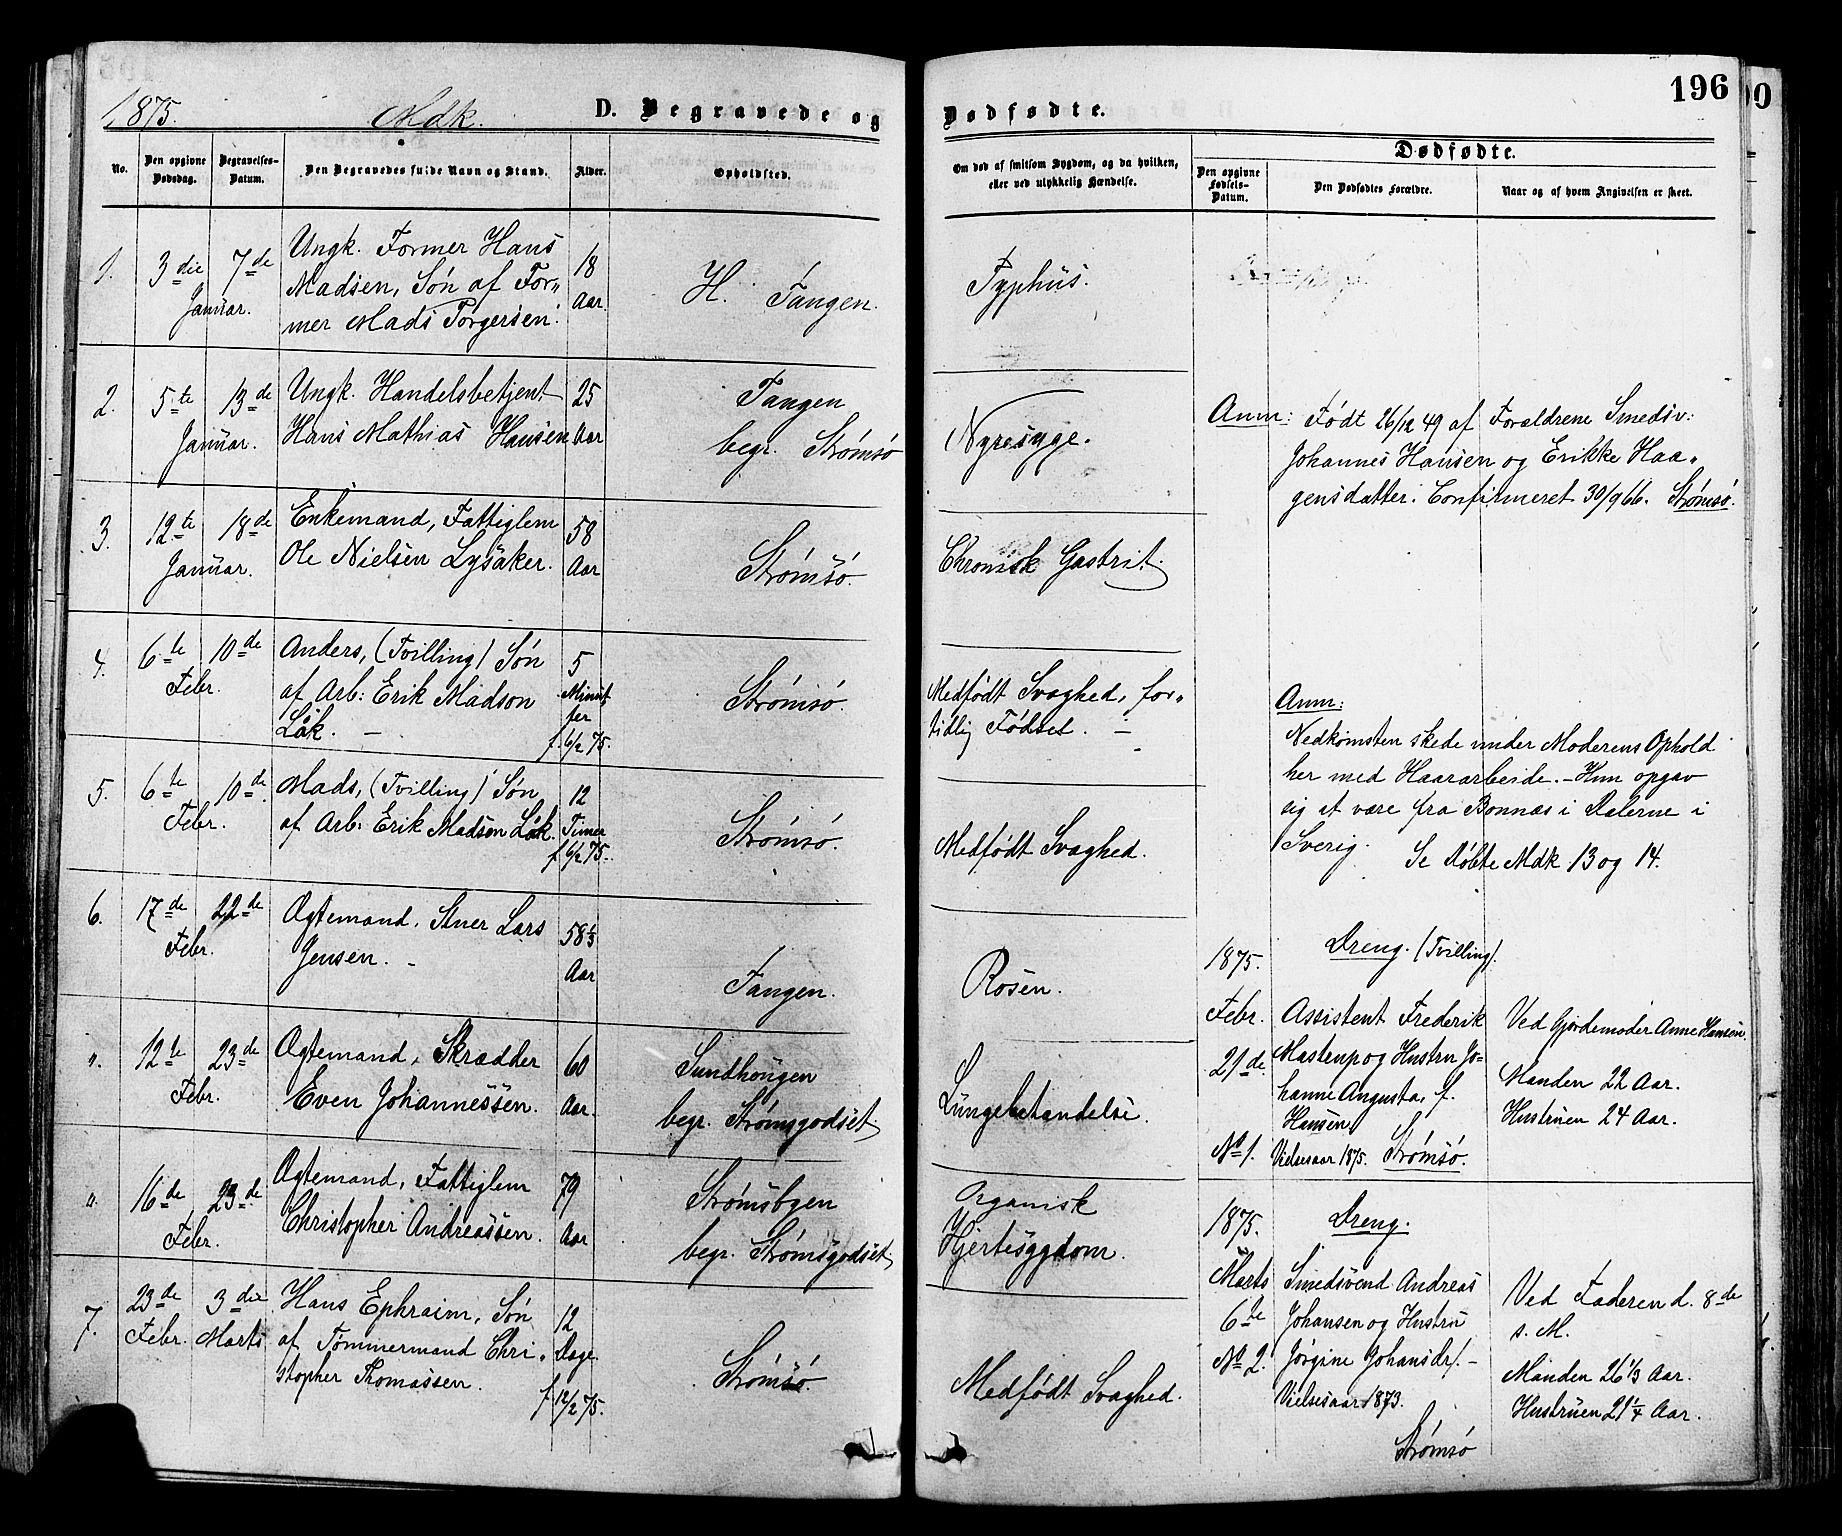 196
1875. Mdk. D. Begravede og Dødfødte.
No.
Den opgivne Dødsdag.
Begravelses-Datum.
Den Begravedes fulde Navn og Stand.
Alder.
Opholdsted.
Om død af smitsom Sygdom, og da hvilken, eller ved ulykkelig Hændelse.
Dødfødte.
Den opgivne Fødsels-Datum.
Den Dødfødtes Forældre.
Naar og af hvem Angivelsen er skeet.
1. 3die 7de Januar.
Ungk. Former Hans
Madsen, Søn af For„
mer Mads Torgersen.
18 Aar
H. Tangen.
Typhus.
2. 5te 13de Januar.
Ungk. Handelsbetjent
Hans Mathias Hansen
25 Aar
Tangen
begr. Strømsø
Nyresyge.
Anm: Født 26/12 49 af Forældrene Smedsv:
Johannes Hansen og Erikke Haa„
gensdatter. Confirmeret 30/9 66. Strømsø.
3. 12te 18de Januar.
Enkemand, Fattiglem
Ole Nielsen Lysaker.
58 Aar
Strømsø.
Chronisk Gastrit.
4. 6te 10de Febr.
Anders, (Tvilling) Søn
af Arb: Erik Madson
Låk. —
5 Minutter
f. 6/2 75.
Strømsø.
Medfødt Svaghed, for„
tidlig Fødsel. —
Anm:
Nedkomsten skede under Moderens Ophold
her med Haararbeide. – Hun opgav
sig at være fra Bonnæs i Dalerne i
Sverig. Se Døbte Mdk 13 og 14.
5. 6te 10de Febr.
Mads, (Tvilling) Søn
af Arb: Erik Madson Låk.
12 Timer
f. 6/2 75.
Strømsø.
Medfødt Svaghed.
6. 17de 22de Febr.
Ægtemand, Stuer Lars
Jensen. —
58 1/3 Aar
Tangen.
Rosen.
1875.
Febr.
21de
No 1.
Dreng. (Tvilling).
Assistent Frederik
Mastrup og Hustru Jo-
hanne Augusta, f.
Hansen
Vielsesaar 1875. Strømsø.
Ved Gjordemoder Anne Hansen.
Manden 22 Aar.
Hustruen 24 Aar.
„. 12te 23de Febr.
Ægtemand, Skrædder
Even Johannessen.
60 Aar.
Sundhougen
begr. Strømsgodset
Lungebetændelse.
„. 16de 23de Febr.
Ægtemand, Fattiglem
Christopher Andreassen.
79 Aar
Strømsbyen
begr. Strømsgodset
Organisk
Hjertesygdom.
1875.
Marts
6te
No 2.
Dreng.
Smedsvend Andreas
Johansen og Hustru
Jørgine Johansdr. –
Vielsesaar 1873.
Strømsø
Ved Faderen d. 8de
s. M.
Manden 26 1/3 Aar.
Hustruen 21 1/4 Aar.
7. 23de Febr. 3die Marts
Hans Ephraim, Søn
af Tømmermand Chri„
stopher Thomassen.
12 Dage
f. 12/2 75.
Strømsø.
Medfødt Svaghed.